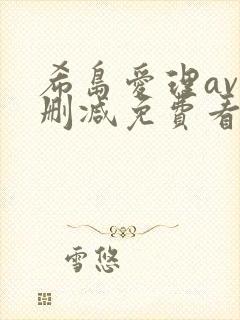 希島愛理av
删减免費看
雪悠